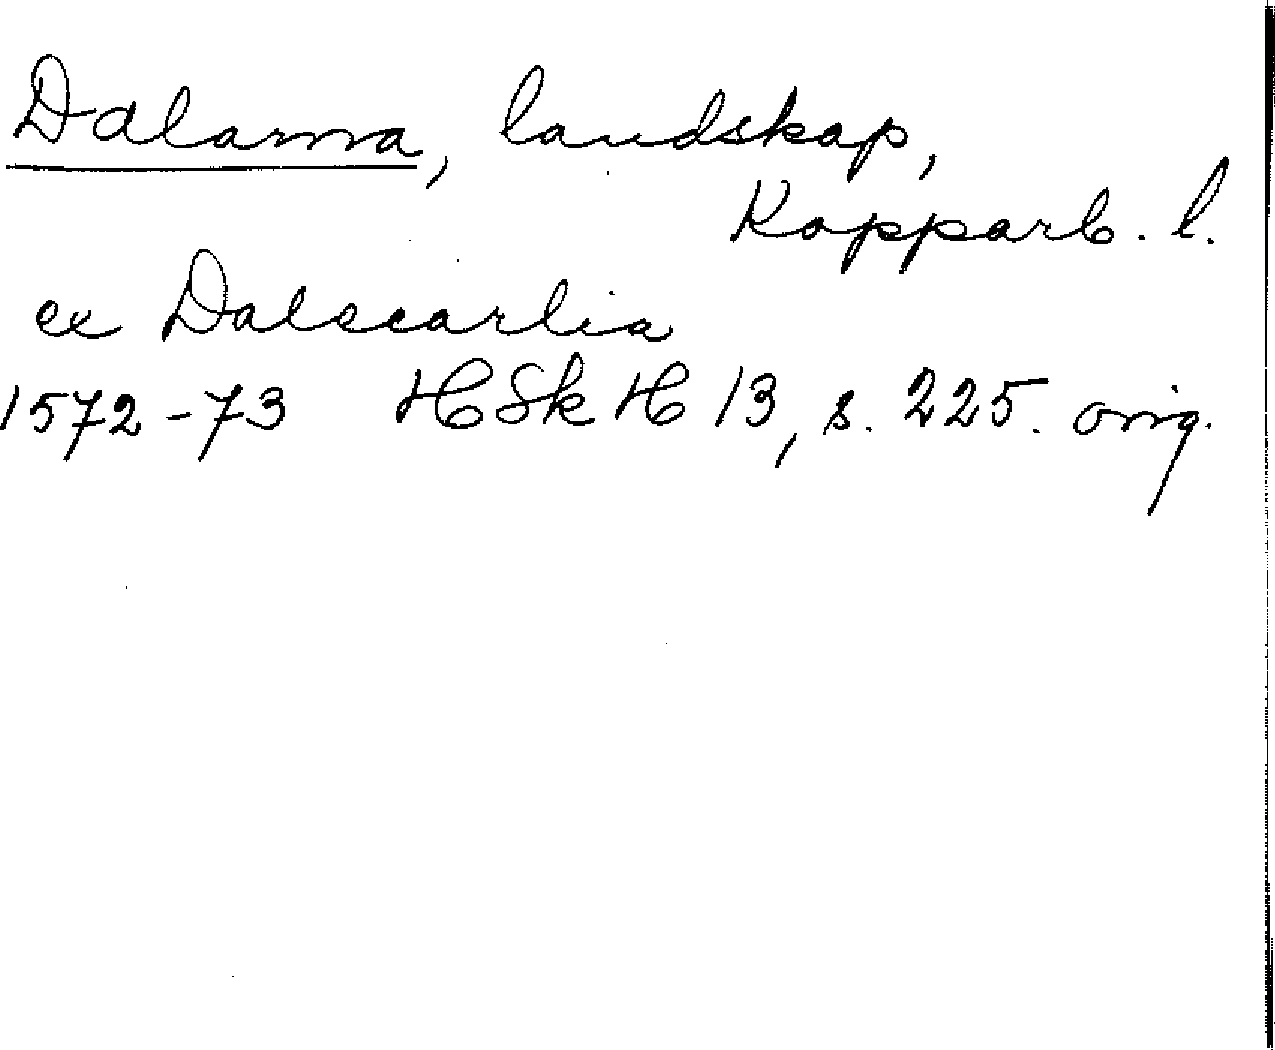 Dalarna, landskap,
Kopparb. l.
ex Dalecarlia
1572-73 HSkH 13, s. 225. orig.